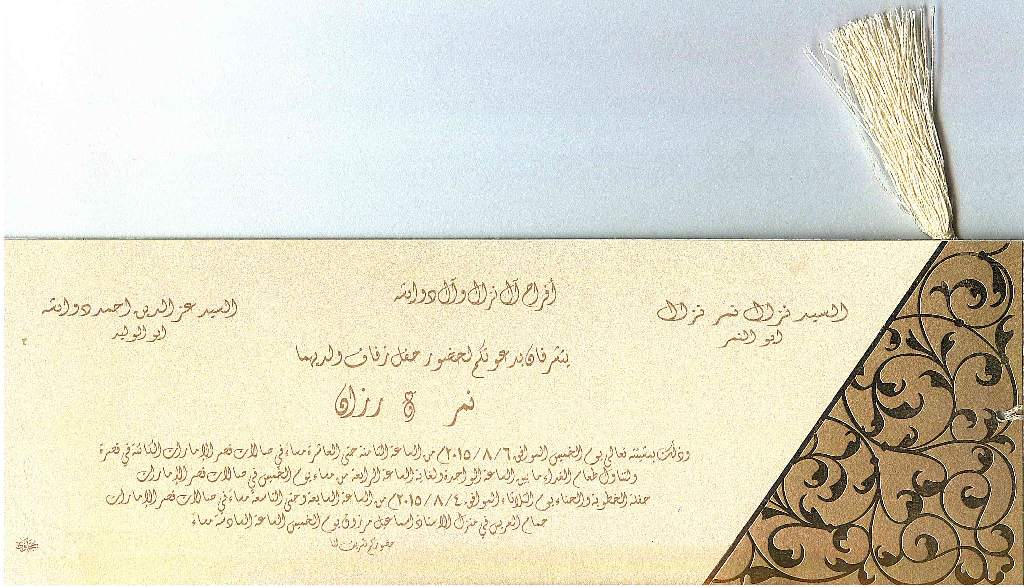 أفراح آل نزال وآل دوابشه
السيد نزال نمر نزال
ابو النمر
السيد عز الدين احمد دوابشه
ابو الوليد
يتشرفان بدعوتكم لحضور حفل زفاف ولديهما
نمر و رزان
وذلك بمشيئته تعالى يوم الخميس الموافق ٢٠١٥/٨/٦ من الساعة الثامنة حتى العاشرة مساء في صالات قصر الإمارات الكائنة في قصرة
ولتناول طعام الغداء ما بين الساعة الواحدة ولغاية الساعة الرابعة من مساء يوم الخميس في صالات قصر الإمارات
حفلة الخطوبة والحناء يوم الثلاثاء الموافق ٢٠١٥/٨/٤ من الساعة السابعة وحتى التاسعة مساء في صالات قصر الإمارات
حمام العريس في منزل الاستاذ اسماعيل مرزوق يوم الخميس الساعة السادسة مساء
حضوركم تشريف لنا